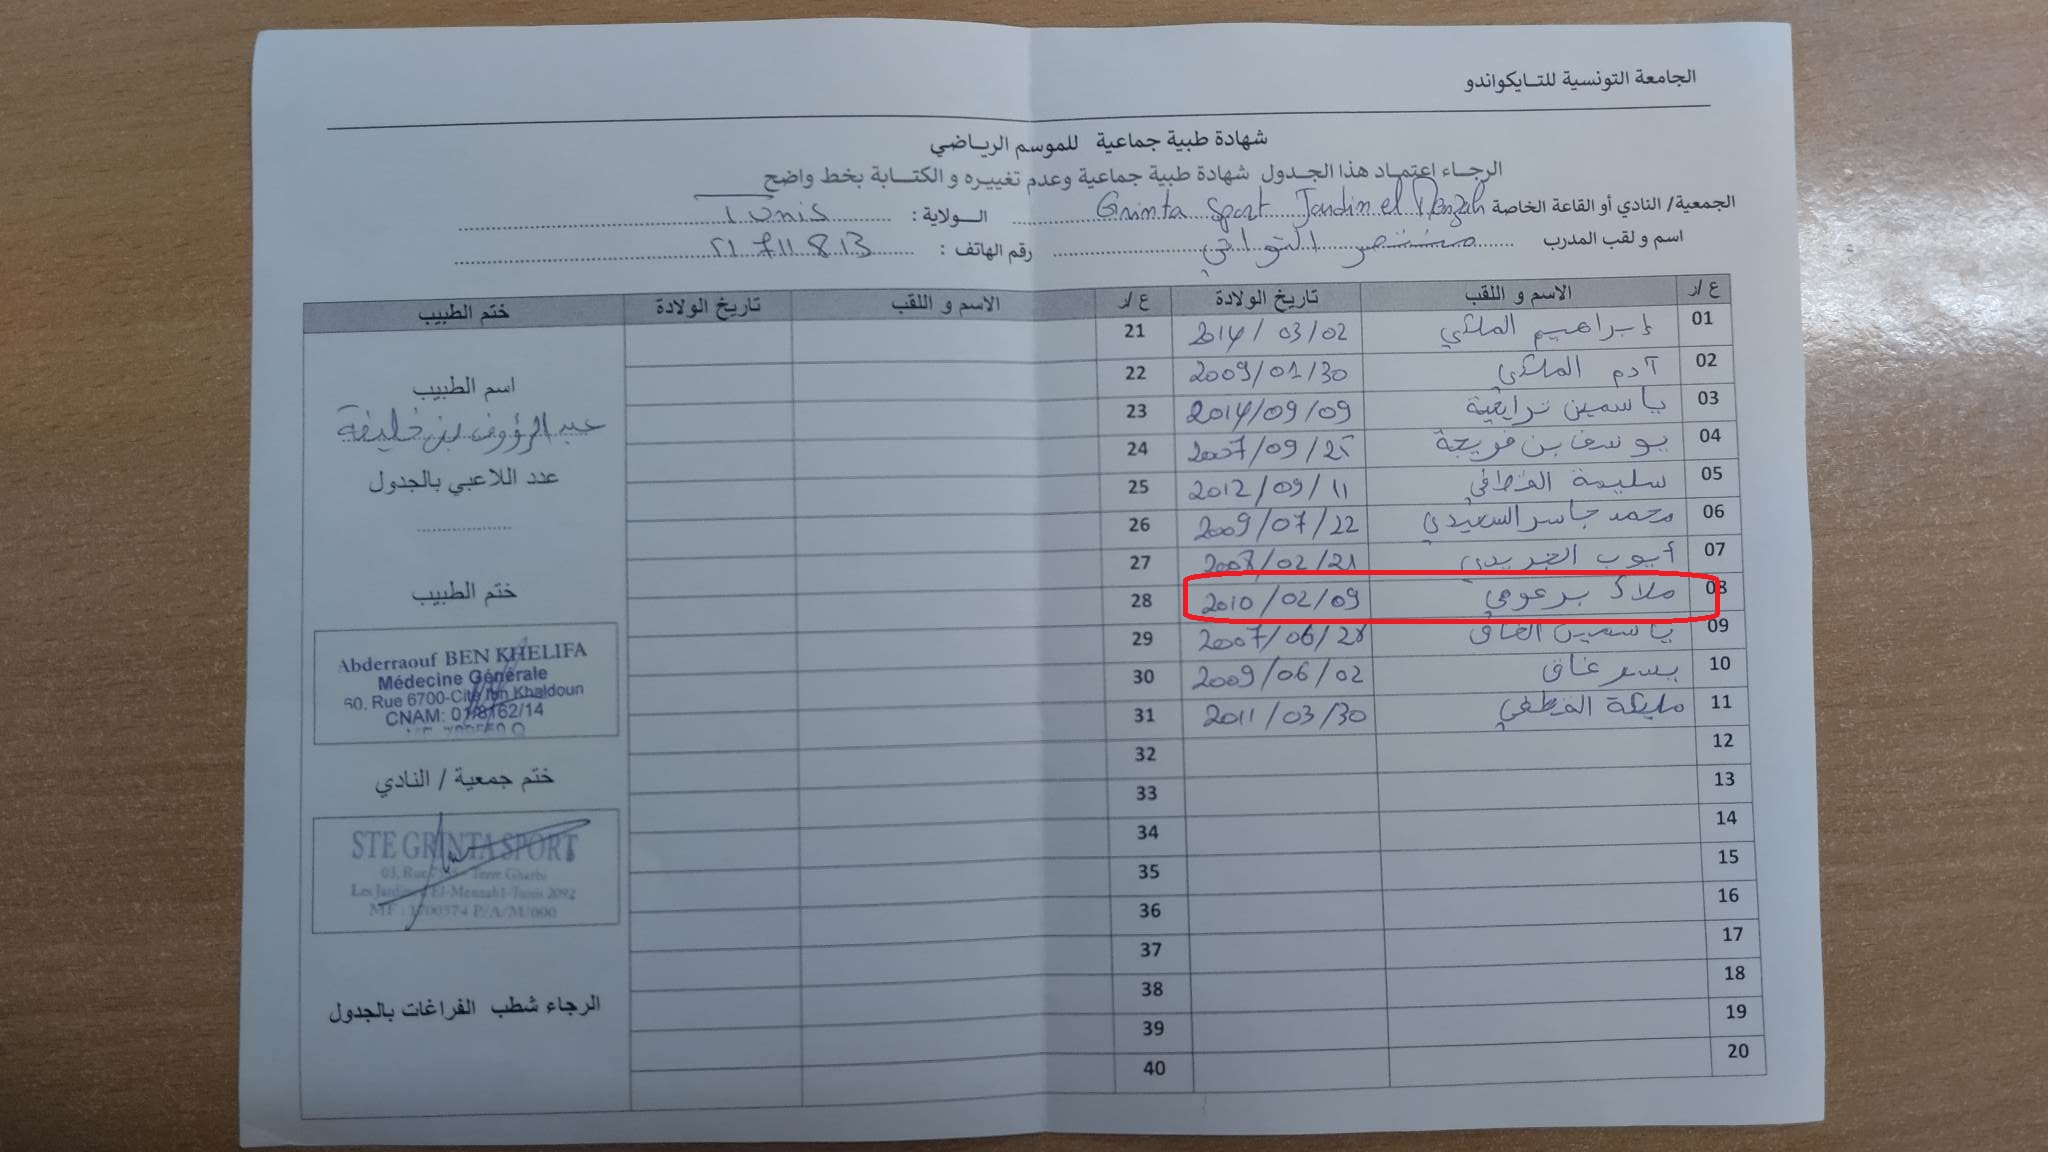 الجامعة التونسية للتايكواندو
شهادة طبية جماعية للموسم الرياضي
الرجاء اعتماد هذا الجدول شهادة طبية جماعية وعدم تغييره و الكتابة بخط واضح
الجمعية/ النادي أو القاعة الخاصة Grinta Sport Jardin el Menzah الولاية : Tunis
اسم و لقب المدرب منتصر التواتي رقم الهاتف : 21 711 813
ع/ر الاسم و اللقب تاريخ الولادة ع/ر الاسم و اللقب تاريخ الولادة ختم الطبيب
01 إبراهيم المالكي 2014/03/02 21
02 آدم المالكي 2009/01/30 22
03 ياسمين ترايعية 2014/09/09 23
04 يوسف بن فريجة 2007/09/25 24
05 سليمة القطفي 2012/09/11 25
06 محمد جاسر السعيدي 2009/07/22 26
07 أيوب الجريدي 2008/02/21 27
08 ملاك برعومي 2010/02/09 28
09 ياسمين الغاق 2007/06/28 29
10 يسر غاق 2009/06/02 30
11 مليكة القطفي 2011/03/30 31
12 32
13 33
14 34
15 35
16 36
17 37
18 38
19 39
20 40
اسم الطبيب
عبد الرؤوف بن خليفة
عدد اللاعبي بالجدول
ختم الطبيب
Abderraouf BEN KHELIFA
Médecine Générale
60, Rue 6700-Cité Ibn Khaldoun
CNAM: 01/8162/14
ختم جمعية / النادي
STE GRINTA SPORT
03, Rue Terre Gharbi
Les Jardins El-Menzah1-Tunis 2092
MF : 1700574 P/A/M/000
الرجاء شطب الفراغات بالجدول